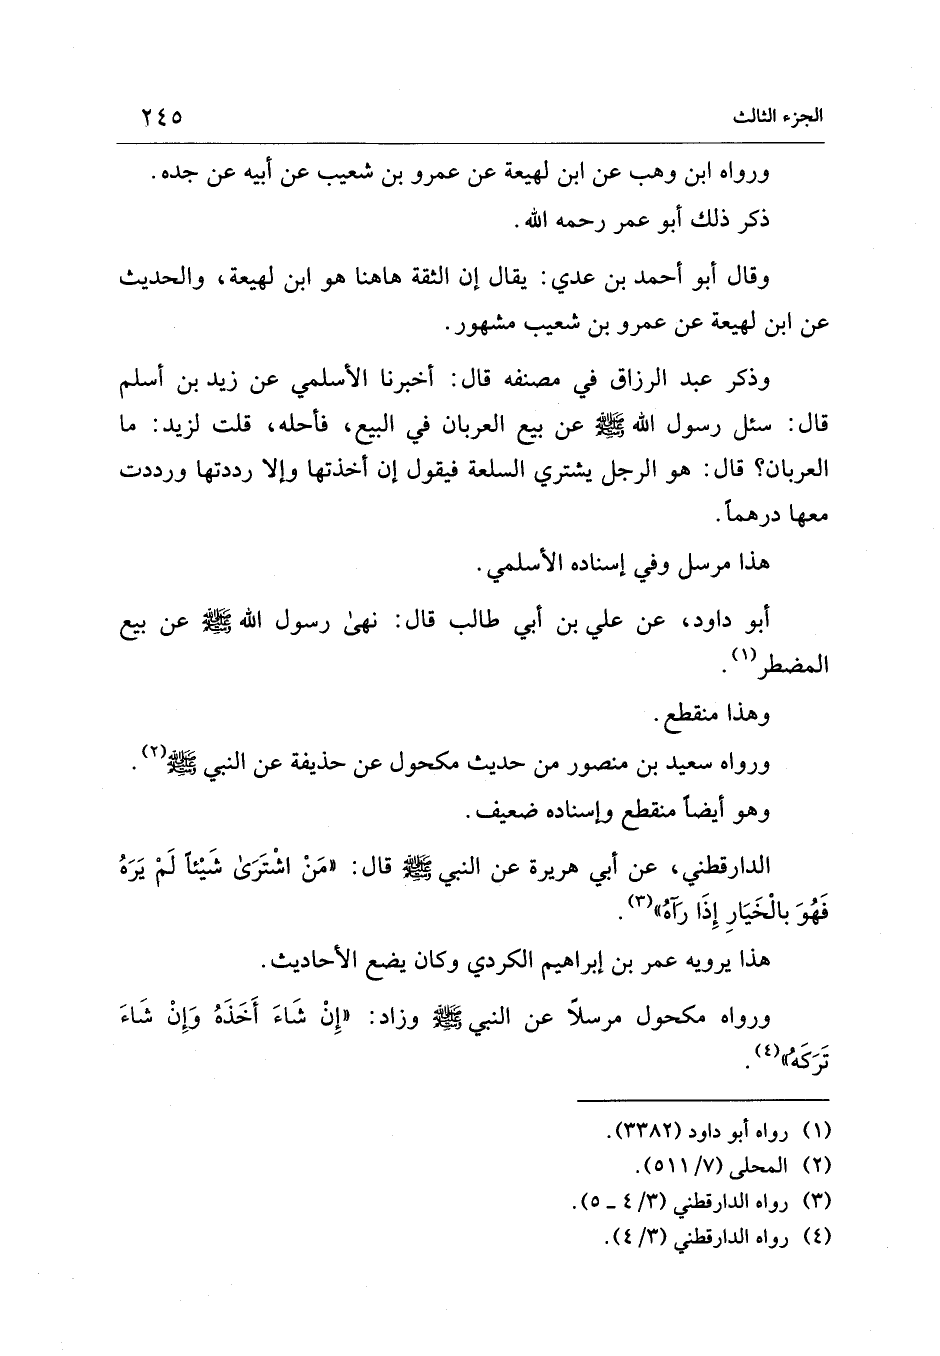 الجزء الثالث ٢٤٥
ورواه ابن وهب عن ابن لهيعة عن عمرو بن شعيب عن أبيه عن جده.
ذكر ذلك أبو عمر رحمه الله.
وقال أبو أحمد بن عدي: يقال إن الثقة هاهنا هو ابن لهيعة، والحديث
عن ابن لهيعة عن عمرو بن شعيب مشهور.
وذكر عبد الرزاق في مصنفه قال: أخبرنا الأسلمي عن زيد بن أسلم
قال: سئل رسول الله ﷺ عن بيع العربان في البيع، فأحله، قلت لزيد: ما
العربان؟ قال: هو الرجل يشتري السلعة فيقول إن أخذتها وإلا رددتها ورددت
معها درهماً.
هذا مرسل وفي إسناده الأسلمي.
أبو داود، عن علي بن أبي طالب قال: نهىٰ رسول الله ﷺ عن بيع
المضطر(١).
وهذا منقطع.
ورواه سعيد بن منصور من حديث مكحول عن حذيفة عن النبي ﷺ(٢).
وهو أيضاً منقطع وإسناده ضعيف.
الدارقطني، عن أبي هريرة عن النبي ﷺ قال: «مَنْ اشْتَرَىٰ شَيْئاً لَمْ يَرَهُ
فَهُوَ بالْخَيَارِ إِذَا رَآهُ»(٣).
هذا يرويه عمر بن إبراهيم الكردي وكان يضع الأحاديث.
ورواه مكحول مرسلاً عن النبي ﷺ وزاد: «إِنْ شَاءَ أَخَذَهُ وَإِنْ شَاءَ
تَرَكَهُ»(٤).
(١) رواه أبو داود (٣٣٨٢).
(٢) المحلى (٧/ ٥١١).
(٣) رواه الدارقطني (٣/ ٤ ـ ٥).
(٤) رواه الدارقطني (٣/ ٤).